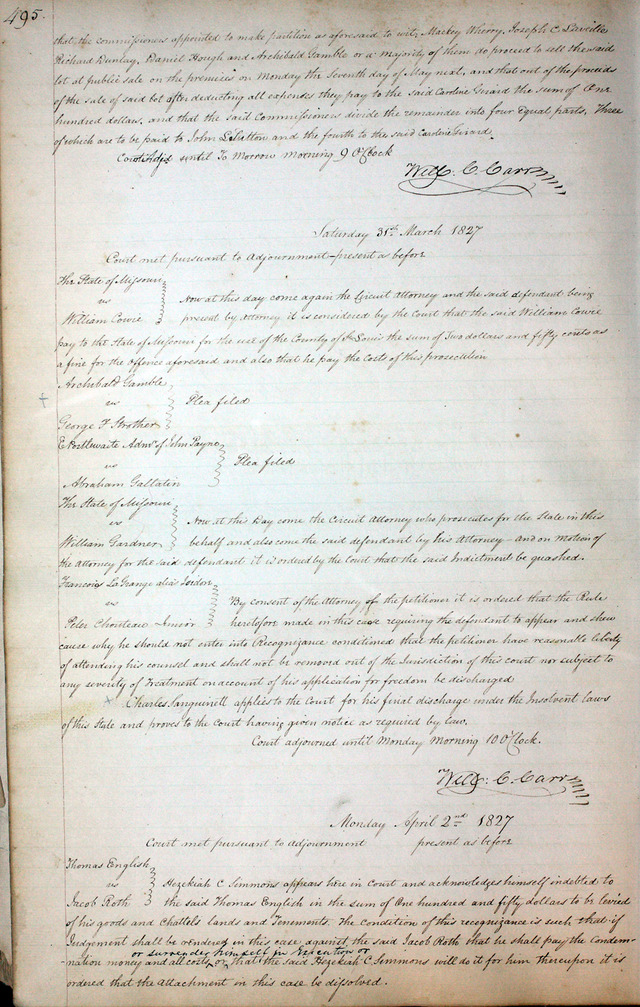 495.
that the commissioners appointed to make partition as aforesaid to wit, Mackey Wherry, Joseph C
Richard Dunlay, Daniel Hough and Archibald Gamble or a majority of them do proceed to sell the said
lot at public sale on the premises on Monday the Seventh day of May next, and that out of the proceeds
of the sale of said lot after deducting all expenses they pay to the said Caroline Girard the sum of One
hundred dollars, and that the said Commissioners divide the remainder into four Equal parts, Three
of which are to be paid to John and the fourth to the said Caroline Girard.
Court Adjd until To Morrow morning 9 O'Clock
Will: C. Carr
Saturday 31st March 1827
Court met pursuant to adjournment — present as before
The State of Missouri
vs
Now at this day come again the Circuit Attorney and the said defendant being
William Cowie
present by Attorney it is considered by the Court that the said William Cowie
pay to the State of Missouri for the use of the County of St Louis the sum of Two dollars and fifty cents as
a fine for the offence aforesaid and also that he pay the costs of this prosecution
Archibald Gamble
vs
Plea filed
George F Strother
E Postlwaite Admr of John Payne
vs
Plea filed
Abraham Gallatin
The State of Missouri
vs
Now at this Day come the Circuit Attorney who prosecutes for the State in this
William Gardner
behalf and also come the said defendant by his Attorney — and on motion of
the Attorney for the said defendant it is ordered by the Court that the said Indictment be quashed.
Francois LaGrange alias
vs
By consent of the Attorney of the petitioner it is ordered that the Rule
Peter Chouteau Junior
heretofore made in this case requiring the defendant to appear and shew
cause why he should not enter into Recognizance conditioned that the petitioner have reasonable liberty
of attending his counsel and shall not be removed out of the Jurisdiction of this court nor subject to
any severity of Treatment on account of his application for freedom be discharged
Charles Sanguinett applies to the Court for his final discharge under the Insolvent laws
of this State and proves to the Court having given notice as required by law.
Court adjourned until Monday Morning 10 O'Clock.
Will: C. Carr
Monday April 2nd 1827
Court met pursuant to adjournment present as before
Thomas English
vs
Hezekiah C Simmons appears here in Court and acknowledges himself indebted to
Jacob Roth
the said Thomas English in the sum of One hundred and fifty dollars to be levied
of his goods and Chattels lands and Tenements. The condition of this recognizance is such that if
Judgement shall be rendered in this case against the said Jacob Roth that he shall pay the condem-
or surrender himself in Execution
nation money and all costs, or that the said Hezekiah C Simmons will do it for him thereupon it is
ordered that the attachment in this case be dissolved.